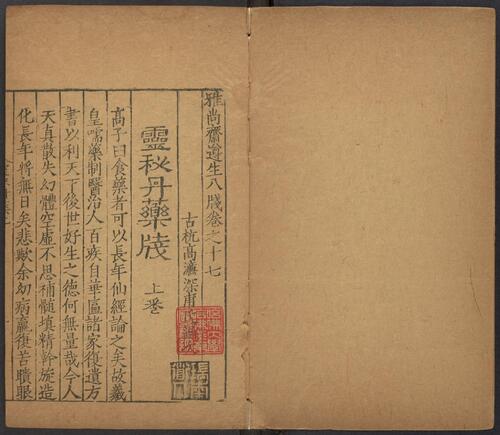 雅尚齋遵生八牋卷之十七
古杭高濂深甫氏編次
靈秘丹藥牋 上卷
高子曰食藥者可以長年仙經論之矣故羲
皇嚐藥制醫治人百疾自華區諸家復遺方
書以利天下後世好生之德何無量哉今人
天真散失幻體空虛不思補髓填精斡旋造
化長年將無日矣悲歟余幼病羸復苦瞶眼